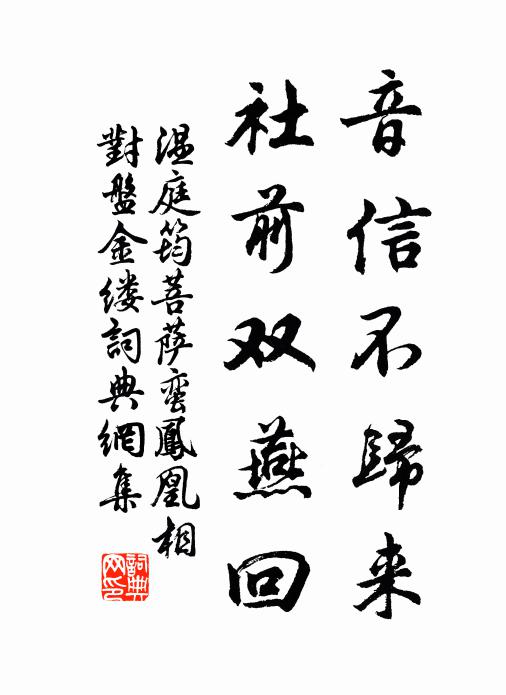 音信不歸来
社前双燕回
温庭筠菩萨蛮鳳凰相
對盤金缕詞典網集
詞典
网印